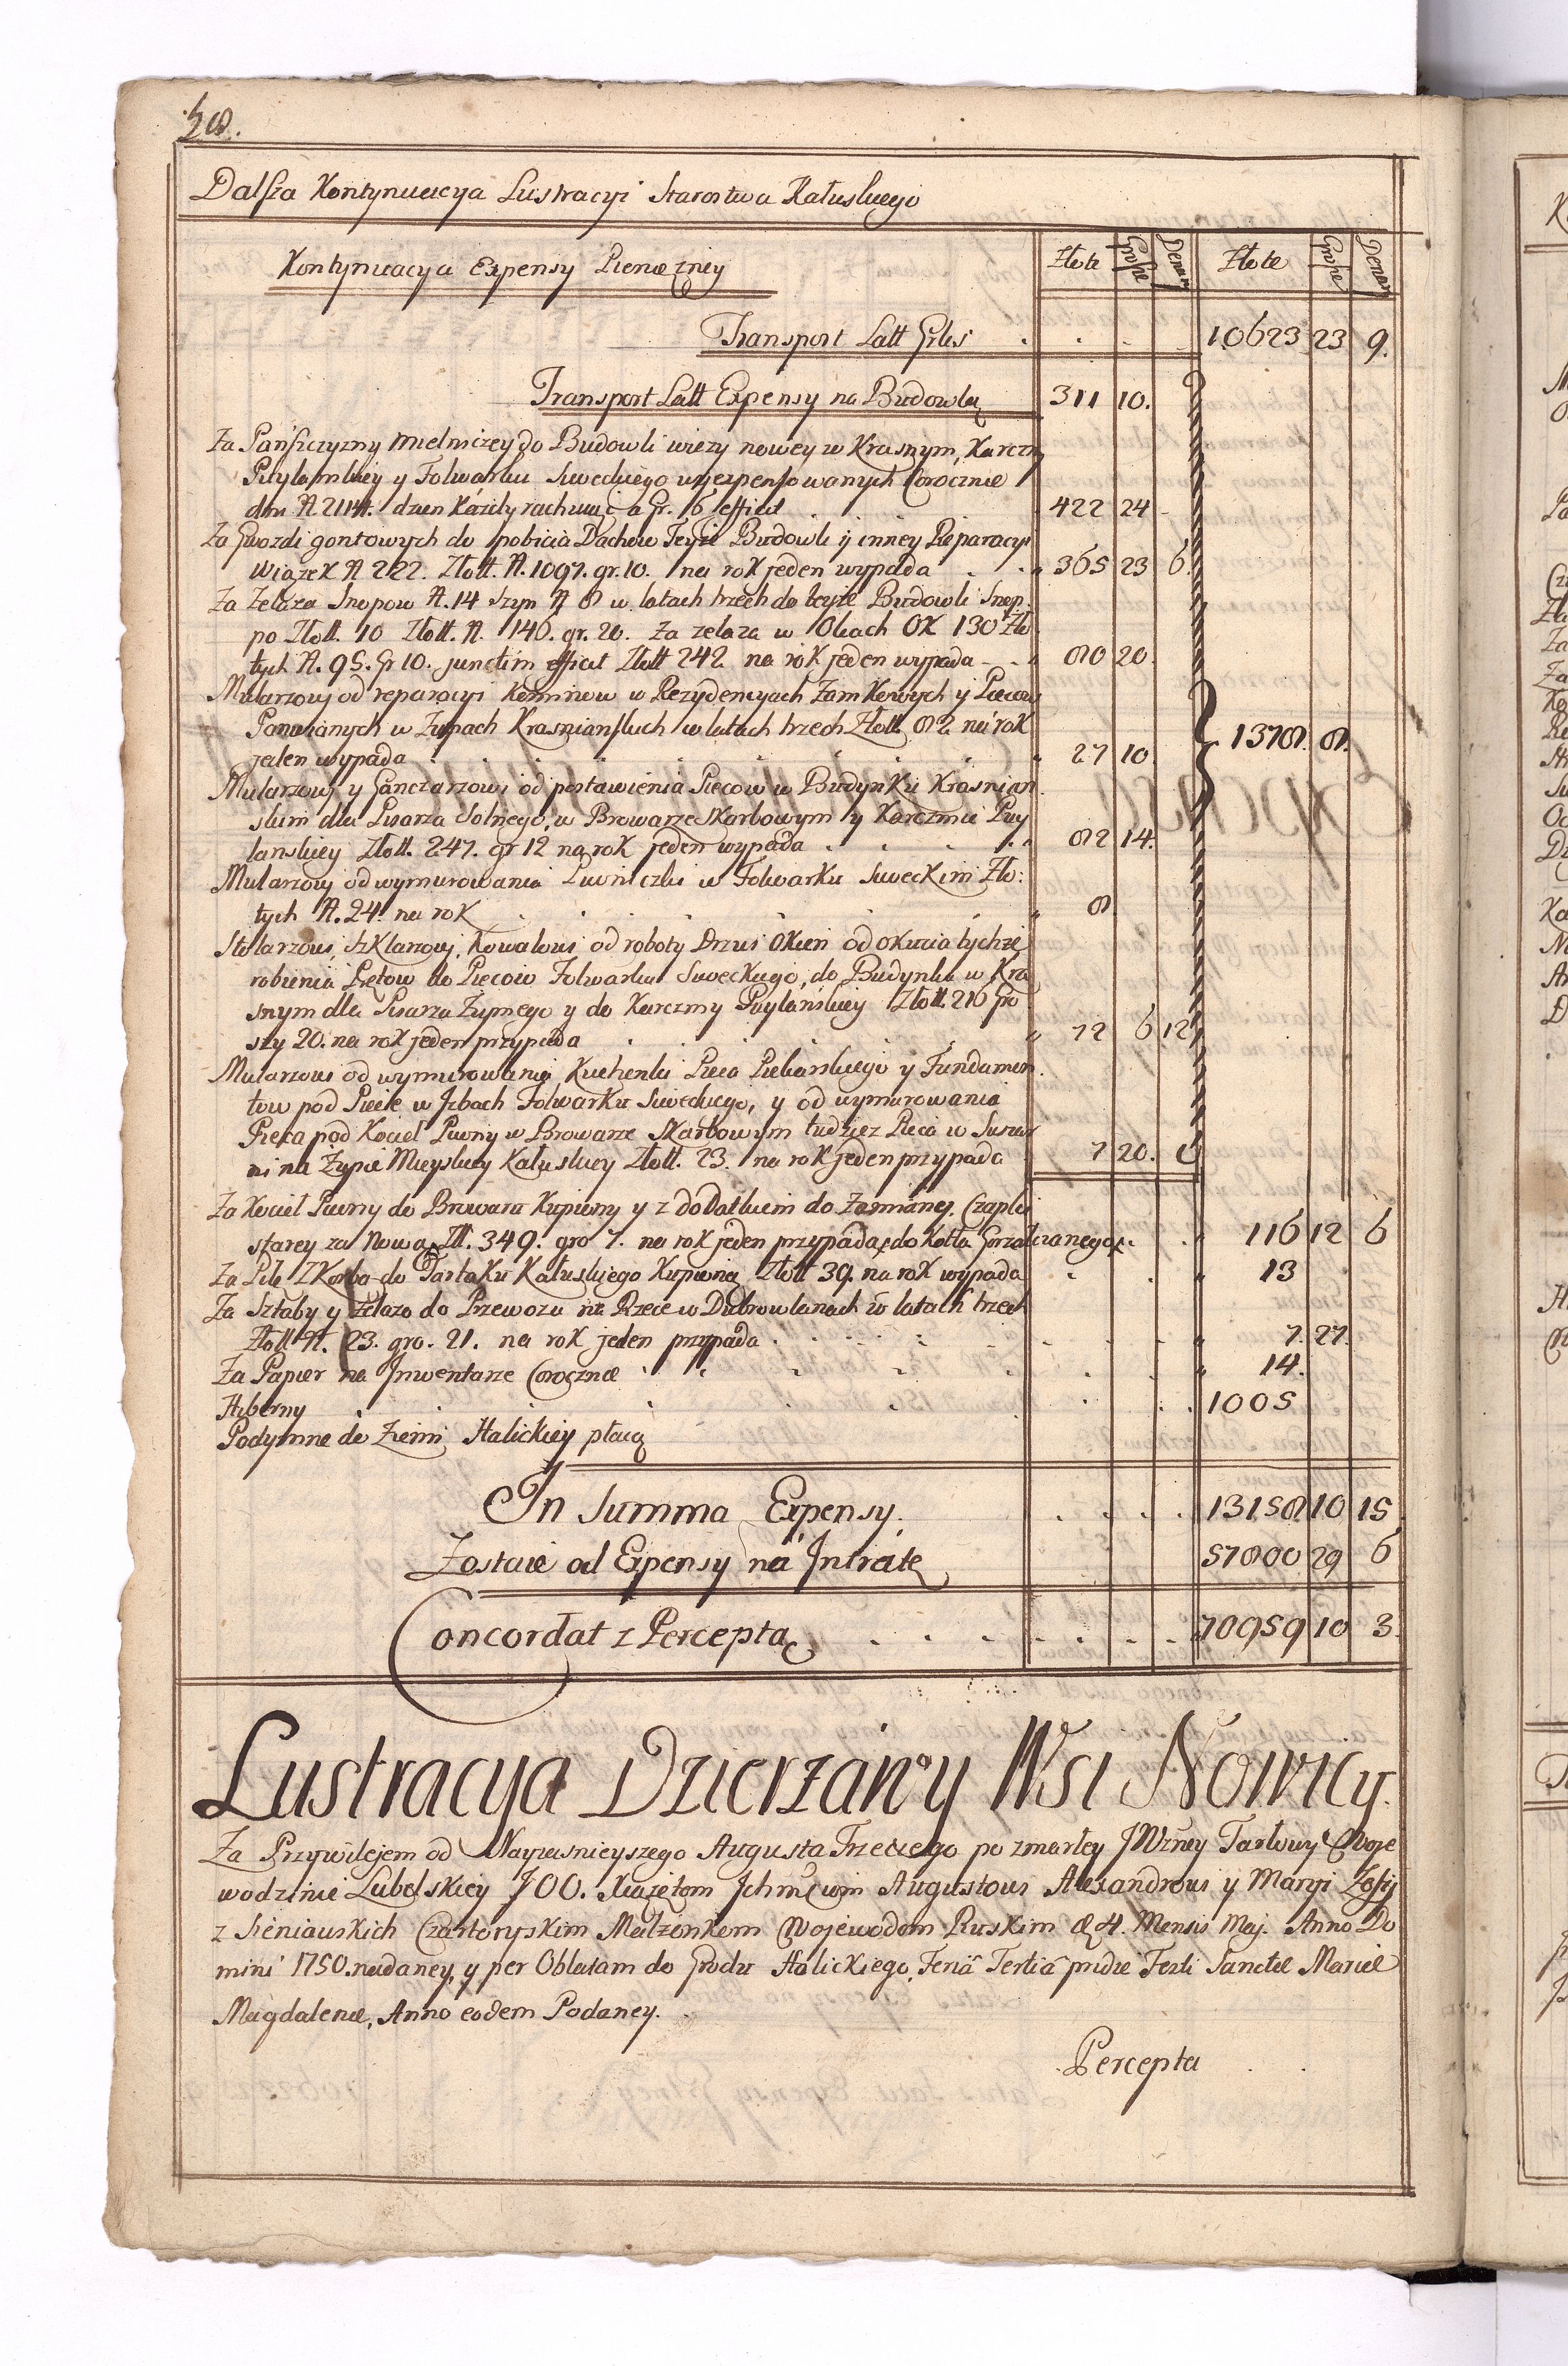 28.
Dalsza Kontynuacya Lustracyi Starostwa Kałuskiego
Kontynuacya Expensy Pieniężney Złote Grosze Denar Złote Grosze Denar
Transport Latt 10623 23 9.
Transport Latt Expensy na Budowlą 311 10.
Za Panszczyzny mielniczey do Budowli wiezy nowey w Krasnym, Karczmy
Puylanskiey y Folwarku Siweckiego wyexpensowanych Corocznie
dni N. 2114. dzien kazdy rachuiąc a Gr. 6 efficit 422 24 -
Za Gwozdi gontowych do pobicia Dachow Teyże Budowli y inney Reparacyi
Wiązek N 222. Złott. N. 1097. gr. 10. na rok jeden wypada 365 23 6.
Za Zelaza Snopow N. 14 Szyn N 8 w latach trzech do teyże Budowli Snop
po Złott. 10 Złott. N. 146. gr. 20. Za zelaza w Okach OK 130 Zło
tych N. 95. Gr 10. junctim efficit Złott 242 na rok jeden wypada 80 20.
Mularzowi od reparacyi Kominow w Rezydencyach Zamkowych y Piecow
Panwianych w Zupach Krasnianskich w latach trzech Złott. 82 na rok
jeden wypada 27 10. 1378. 8.
Mularzowi y Ganczarzowi od postawienia Piecow w Budynku Krasnian
skim dla Pisarza Solnego, w Browarze Skarbowym y Karczmie Puy
lanskiey Złott. 247. gr 12 na rok jeden wypada 82 14.
Mularzowi od wymurowania Piwniczki w Folwarku Siweckim Zło:
tych N. 24. na rok 8
Stolarzowi, Szklarzowi, Kowalowi od roboty Drzwi Okien od okucia tychże
robienia Prętow do Piecow Folwarku Siweckiego, do Budynku w Kra
snym dla Pisarza Zupnego y do Karczmy Puylańskiey Złott. 216 Gro
szy 20. na rok jeden przypada 72 6 12
Mularzowi od wymurowania Kuchenki Pieca Piekarskiego y Fundamen
tow pod Piece w Jzbach Folwarku Siweckiego, y od wymurowania
Pieca pod Kocieł Piwny w Browarze Skarbowym tudziez Pieca w Suszar
ni na Zupie Mieyskiey Kałuskiey Złott. 23. na rok jeden przypada 7 20. 6
Za Kocieł Piwny do Browaru Kupiony y z doDatkiem do Zamiany Czapki
starey za Nowa Zł. 349. gro 7. na rok jeden przypada do Kotła Gorzałczanego 116 12 6
Za Piłę z Korbą do Tartaku Kałuskiego Kupioną Złott 39. na rok wypada 13
Za Sztaby y żelazo do Przewozu na Rzece w Dubowlanach w latach trzech
Złott N. 23. gro. 21. na rok jeden przypada 7. 27.
Za Papier na Jnwentarze Corocznie 14.
Hiberny 1005
Podymne do Ziemi Halickiey płacą
In Summa Expensy. 13158 10 15
Zostaie od Expensy na Jntratę 57800 29 6
Concordat z Perceptą 70959 10 3.
Lustracya Dzierzáwy Wsi Nowicy.
Za Przywilejem od Nayiasnieyszego Augusta Trzeciego po zmarłey JWżney Tarłowy Woje
wodzinie Lubelskiey JOO. Xiążętom Jchmciom Augustowi Alexandrowi y Maryi Zofij
z Sieniauskich Czartoryskim Małżonkom Wojewodom Ruskim d. 4. Mensis Maj. Anno Do
mini 1750. nadaney, y per Oblatam do Grodu Halickiego, Feriâ Tertiâ pridie Festi Sanctæ Mariæ
Magdalenæ, Anno eodem Podaney.
Percepta